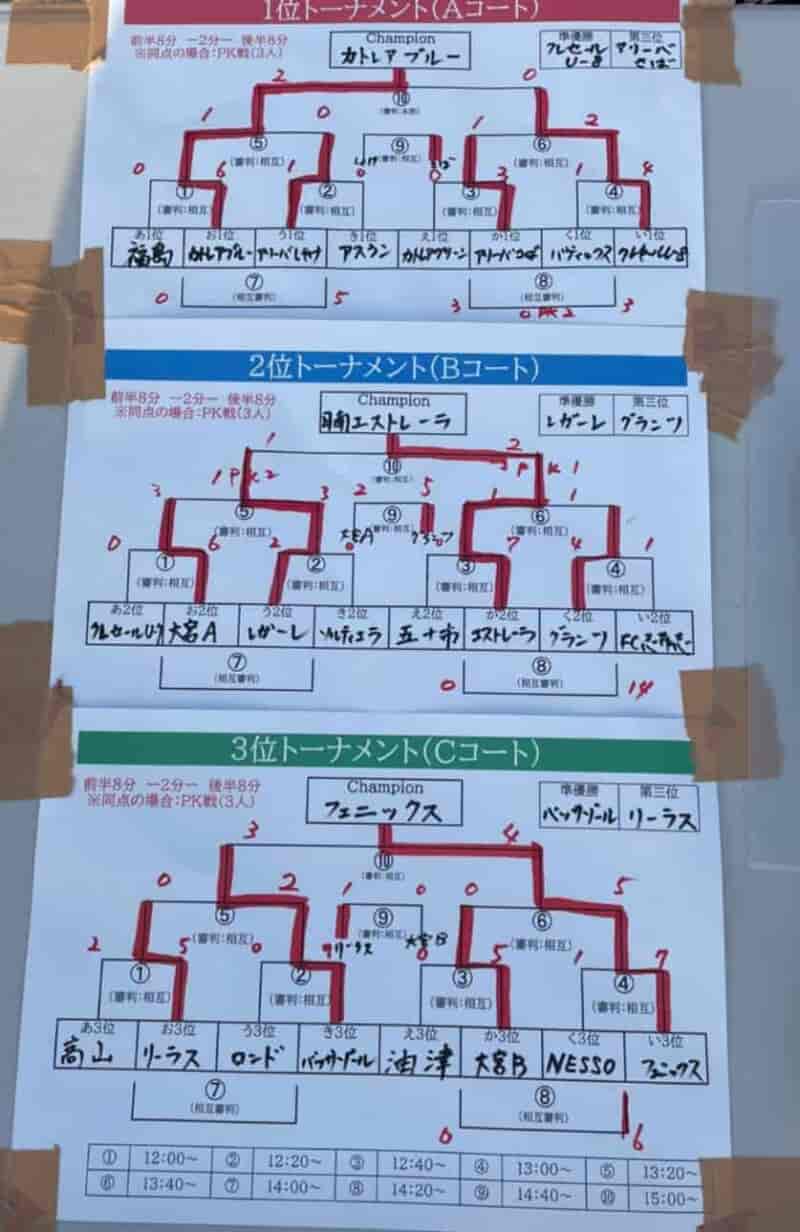 1位トーナメント(Aコート)
前半8分 ー2分ー 後半8分
※同点の場合:PK戦(3人)
Champion
カトレア ブルー
準優勝 第三位
クレセール U-8 アリーバ せば
2 ⑩ 0
(審判:本部)
1 0 1 2
⑤ ⑨ ⑥
(審判:相互) (審判:相互) (審判:相互)
0 6 1 0 0 1 4
① ② ③ ④
(審判:相互) (審判:相互) (審判:相互) (審判:相互)
あ1位 お1位 う1位 き1位 え1位 か1位 く1位 い1位
福島 カトレアブルー アスラン カトレアグリーン
⑦ ⑧
(相互審判) (相互審判)
0 5 3 0 PK 2 3
2位トーナメント(Bコート)
前半8分 ー2分ー 後半8分
※同点の場合:PK戦(3人)
Champion
日南エストレーラ
準優勝 第三位
レガーレ グランツ
1 ⑩ 2
(審判:相互)
1 PK 2 PK 1
3 3 2 5 1 1
⑤ ⑨ ⑥
(審判:相互) (審判:相互) (審判:相互)
大宮A グランツ
0 6 2 0 7 4 1
① ② ③ ④
(審判:相互) (審判:相互) (審判:相互) (審判:相互)
あ2位 お2位 う2位 き2位 え2位 か2位 く2位 い2位
大宮A レガーレ ソルティエラ 五十市 エストレーラ グランツ
⑦ ⑧
(相互審判) (相互審判)
0 14
3位トーナメント(Cコート)
前半8分 ー2分ー 後半8分
※同点の場合:PK戦(3人)
Champion
フェニックス
準優勝 第三位
バッサゾール リーラス
3 ⑩ 4
(審判:相互)
0 2 1 0 0 5
⑤ ⑨ ⑥
(審判:相互) (審判:相互) (審判:相互)
リーラス 大宮B
2 5 0 9 0 5 1 7
① ② ③ ④
(審判:相互) (審判:相互) (審判:相互) (審判:相互)
あ3位 お3位 う3位 き3位 え3位 か3位 く3位 い3位
高山 リーラス ロンド バッサゾール 油津 大宮B NESSO フェニックス
⑦ ⑧
(相互審判) (相互審判)
0 6
① 12:00〜 ② 12:20〜 ③ 12:40〜 ④ 13:00〜 ⑤ 13:20〜
⑥ 13:40〜 ⑦ 14:00〜 ⑧ 14:20〜 ⑨ 14:40〜 ⑩ 15:00〜